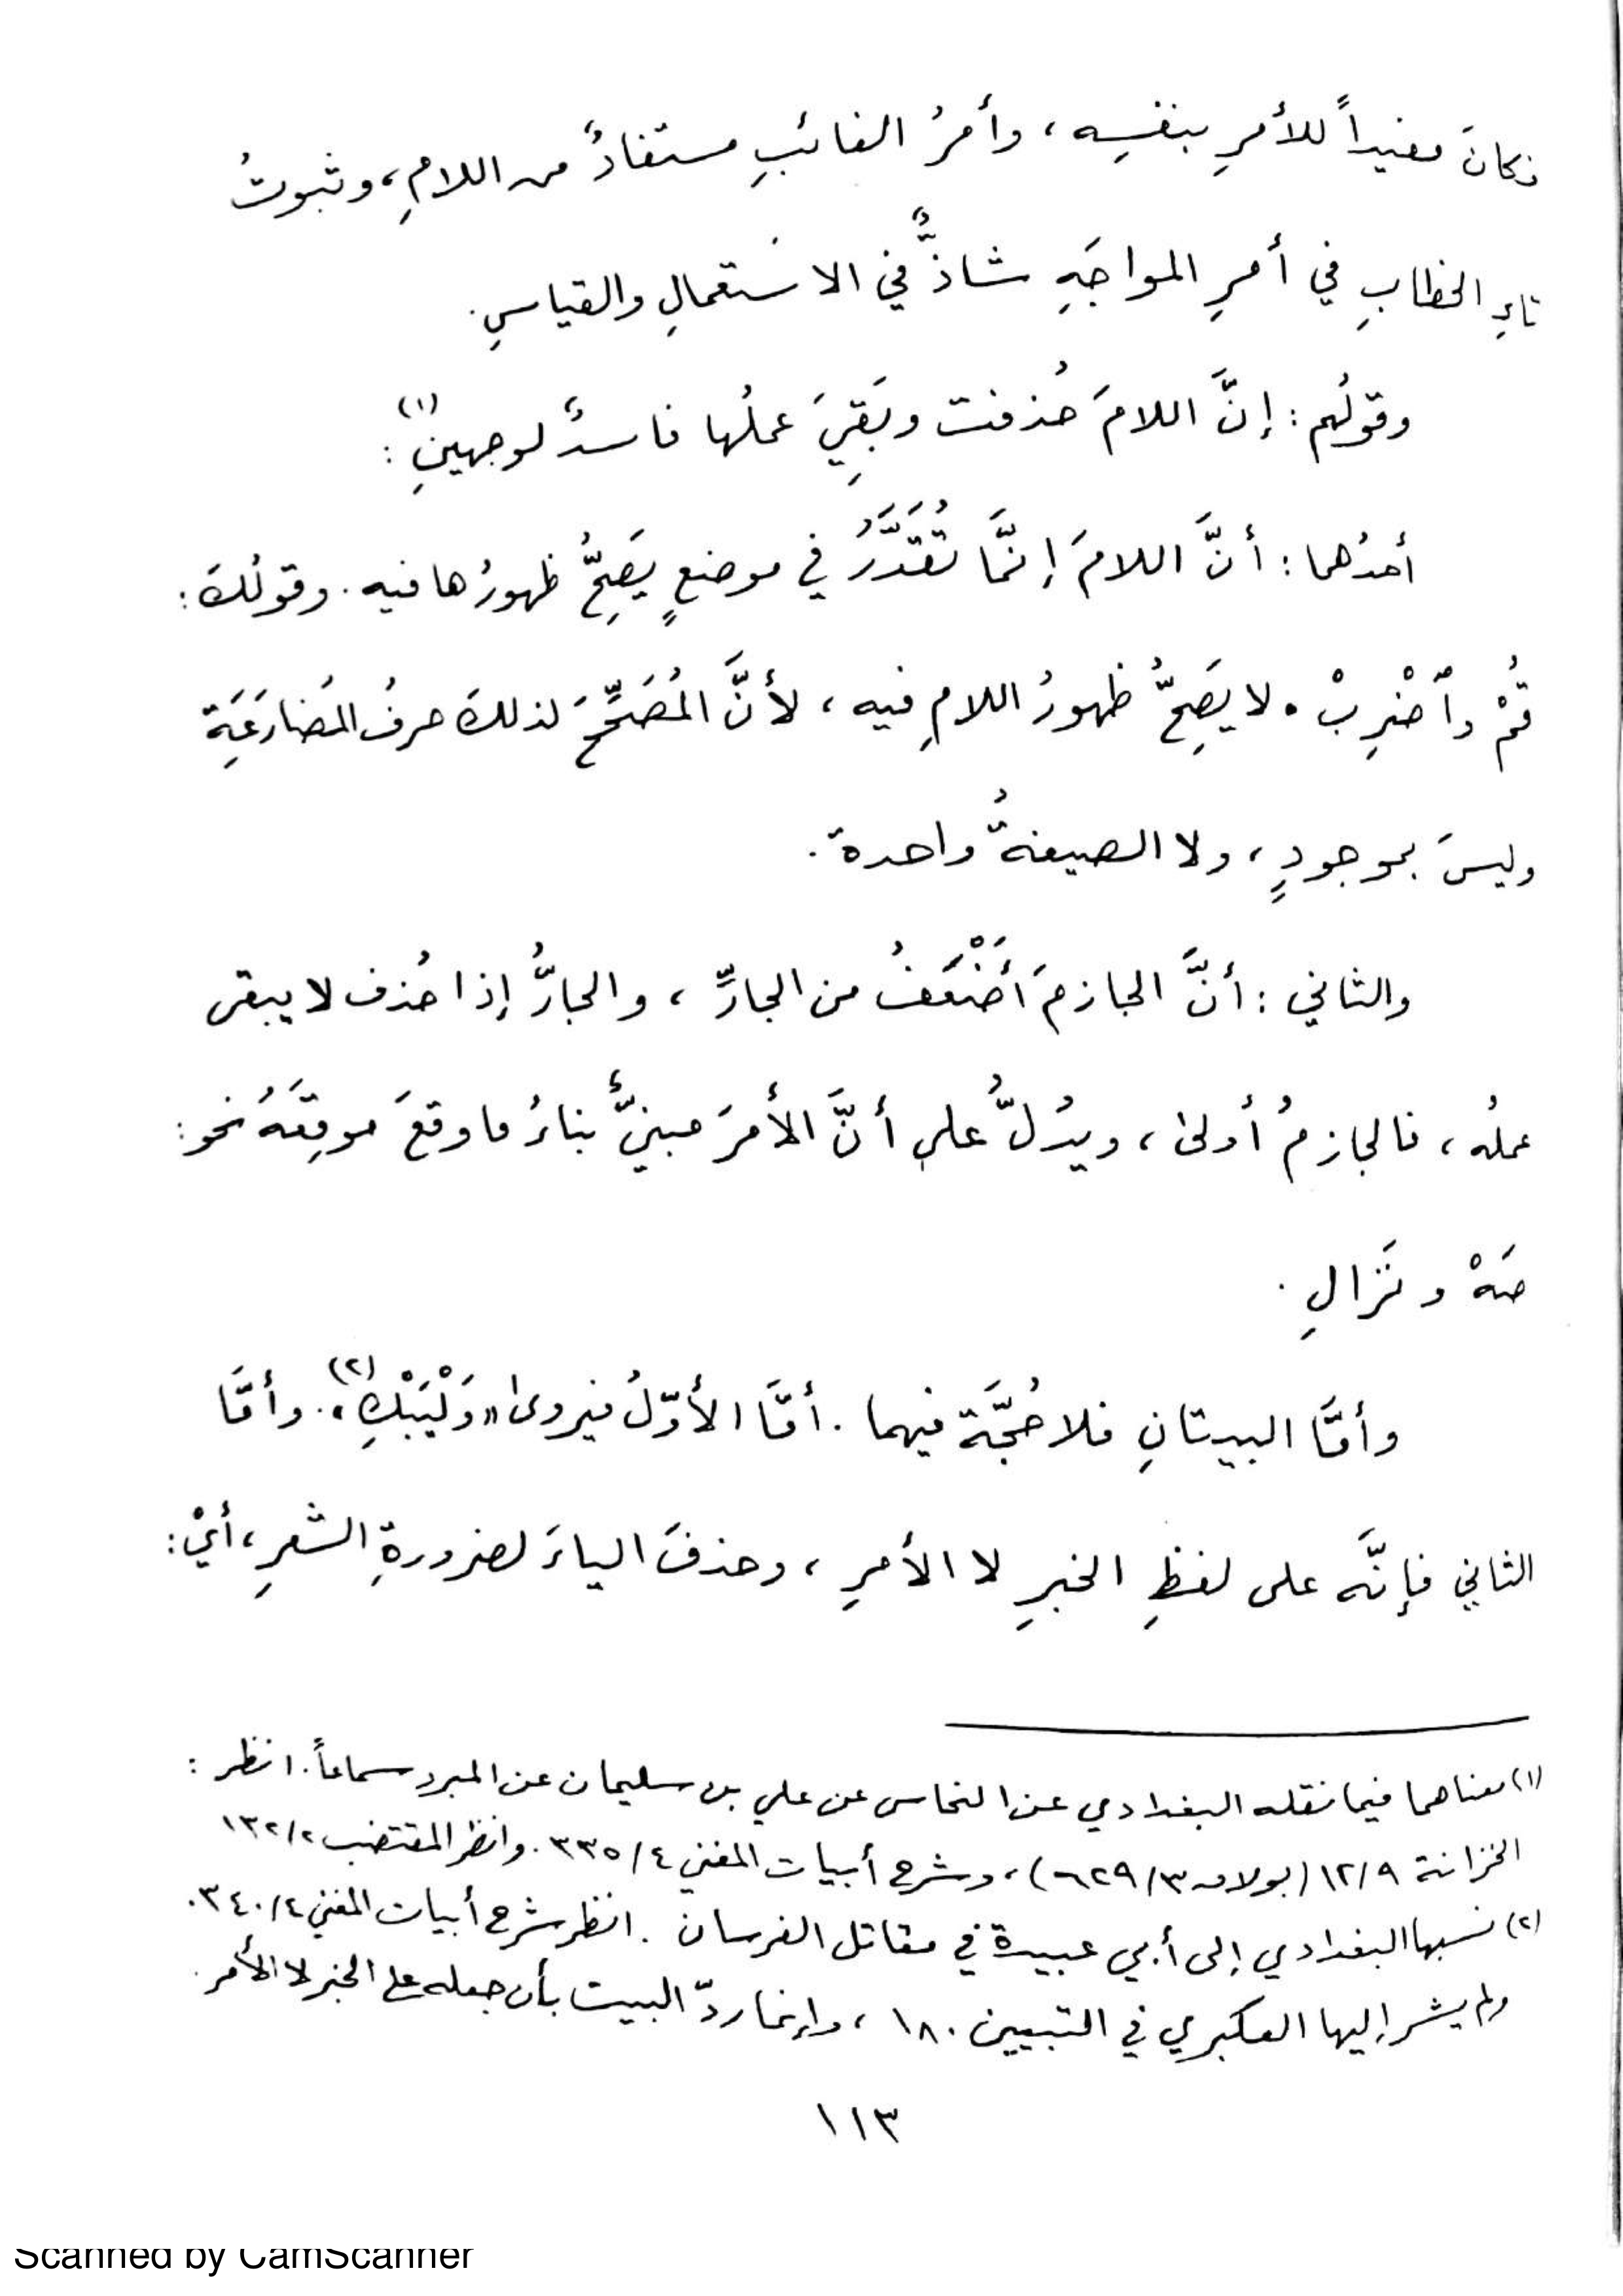 فكانَ مفيداً للأمرِ بنفسِه، وأمرُ الغائبِ مستفادٌ من اللامِ، وثبوتُ
تاءِ الخطابِ في أمرِ المواجَهِ شاذٌّ في الاستعمالِ والقياسِ.
وقولُهم: إنَّ اللامَ حُذفت وبَقِيَ عملُها فاسدٌ لوجهينِ(١):
أحدُهما: أنَّ اللامَ إنَّما تُقَدَّرُ في موضعٍ يَصِحُّ ظهورُها فيه. وقولُكَ:
قُمْ واْضْرِبْ. لا يَصِحُّ ظهورُ اللامِ فيه، لأنَّ المُصَحِّحَ لذلكَ حرفُ المُضارَعَةِ
وليسَ بموجودٍ، ولا الصيغةُ واحدة.
والثاني: أنَّ الجازمَ أَضْعَفُ من الجارِّ، والجارُّ إذا حُذف لا يبقى
عملُه، فالجازمُ أولىٰ، ويدُلُّ على أنَّ الأمرَ مبنيٌّ بناءُ ما وقعَ موقِعَهُ نحو:
صَهْ ونَزالِ.
وأمَّا البيتانِ فلا حُجَّة فيهما. أمَّا الأوّلُ فيروىٰ «وَلْيَبْكِ»(٢). وأمَّا
الثاني فإنَّه على لفظِ الخبرِ لا الأمرِ، وحذفَ الياءَ لضرورةِ الشعرِ، أيْ:
(١) معناهما فيما نقله البغدادي عن النحاس عن علي بن سليمان عن المبرد سماعاً. انظر:
الخزانة ١٢/٩ (بولاق ٦٢٩/٣)، وشرح أبيات المغني ٣٣٥/٤. وانظر المقتضب ١٣٢/٢
(٢) نسبها البغدادي إلى أبي عبيدة في مقاتل الفرسان. انظر شرح أبيات المغني ٣٤٠/٤.
ولم يشر إليها العكبري في التبيين ١٨٠، وإنما ردّ البيت بأن جعله على الخبر لا الأمر.
١١٣
Scanned by CamScanner